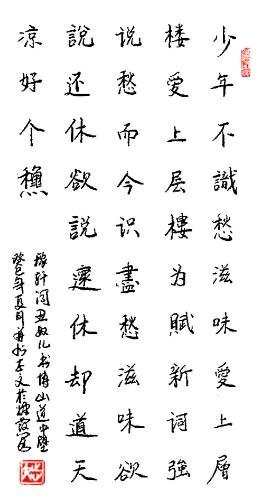 少年不識愁滋味愛上層
楼愛上层樓为賦新詞強
说愁而今识盡愁滋味欲
説还休欲説還休却道天
凉好个龝
稼轩词丑奴儿书博山道中壁
癸巳年夏月